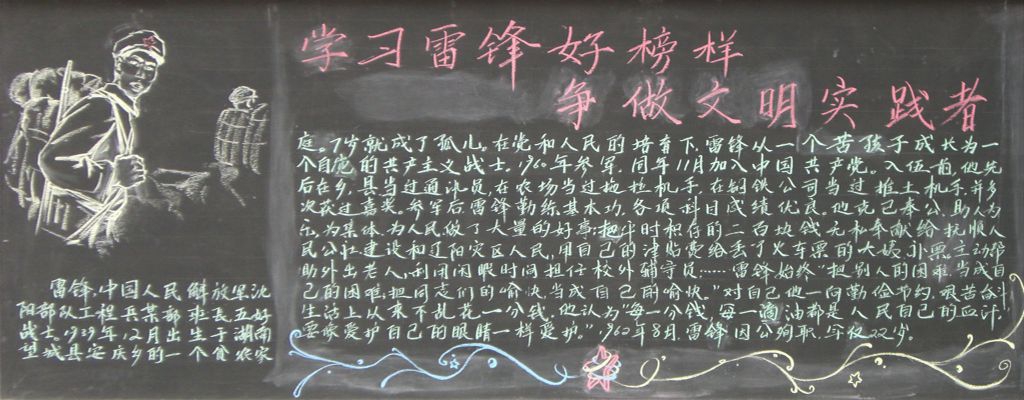 学习雷锋好榜样
争做文明实践者
雷锋,中国人民解放军沈
阳部队工程兵某部班长,五好
战士。1939年12月出生于湖南
望城县安庆乡的一个贫农家
庭。7岁就成了孤儿。在党和人民的培育下,雷锋从一个苦孩子成长为一
个自觉的共产主义战士。1960年参军,同年11月加入中国共产党。入伍前,他先
后在乡、县当过通讯员,在农场当过拖拉机手,在钢铁公司当过推土机手,并多
次获过嘉奖。参军后,雷锋勤练基本功,各项科目成绩优良。他克己奉公,助人为
乐,为集体、为人民做了大量的好事:把平时积存的二百块钱无私奉献给抚顺人
民公社建设和辽阳灾区人民,用自己的津贴费给丢了火车票的大嫂补票,主动帮
助外出老人,利用闲暇时间担任校外辅导员……雷锋始终“把别人的困难当成自
己的困难,把同志们的愉快当成自己的愉快。”对自己他一向勤俭节约,艰苦奋斗
生活上从来不乱花一分钱,他认为“每一分钱,每一滴油都是人民自己的血汗,
要像爱护自己的眼睛一样爱护。”1962年8月,雷锋因公殉职,年仅22岁。